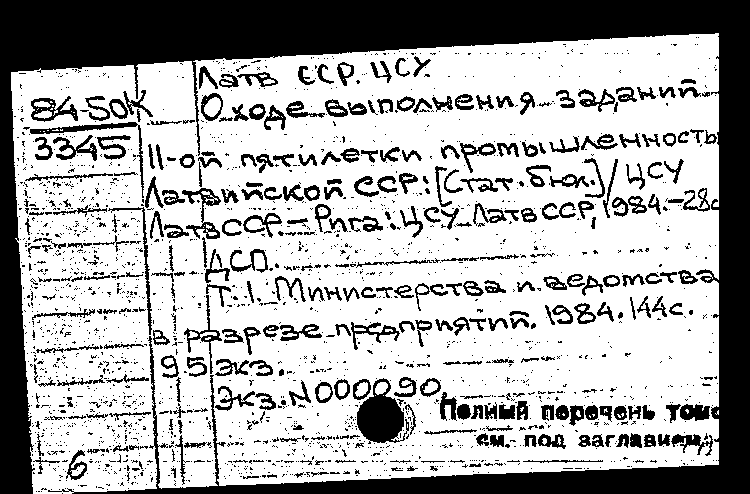 Латв ССР. ЦСУ.
84-50К
О ходе выполнения заданий
3345
11-ой пятилетки промышленность
Латвийской ССР: [Стат. бюл.] / ЦСУ
ЛатвССР. - Рига: ЦСУ ЛатвССР, 1984. - 28с
ДСП.
Т. 1. Министерства и ведомства
в разрезе предприятий. 1984. 144с.
95 экз.
Экз. N000090.
Полный перечень томо
см. под заглавием
6